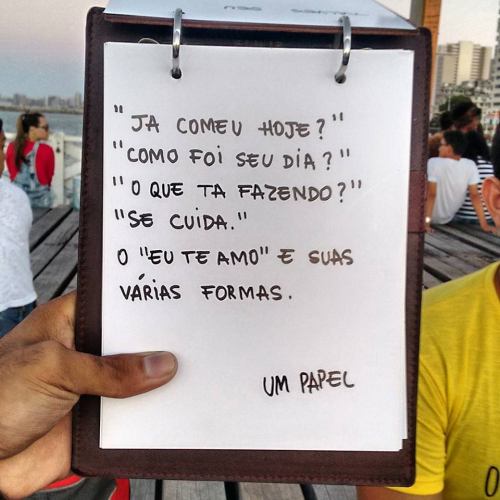 "JA COMEU HOJE?"
"COMO FOI SEU DIA?"
"O QUE TA FAZENDO?"
"SE CUIDA."
O "EU TE AMO" E SUAS
VÁRIAS FORMAS.
UM PAPEL